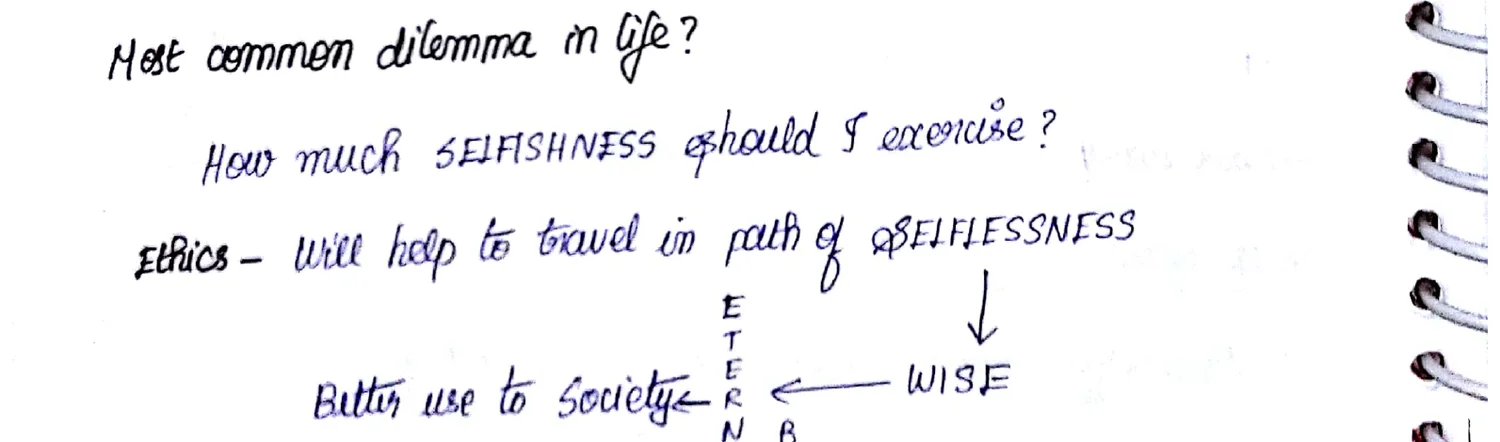 Most common dilemma in life?
How much SELFISHNESS should I exercise?
Ethics - Will help to travel in path of SELFLESSNESS
↓
Better use to Society ← ← WISE
E
T
E
R
N
B